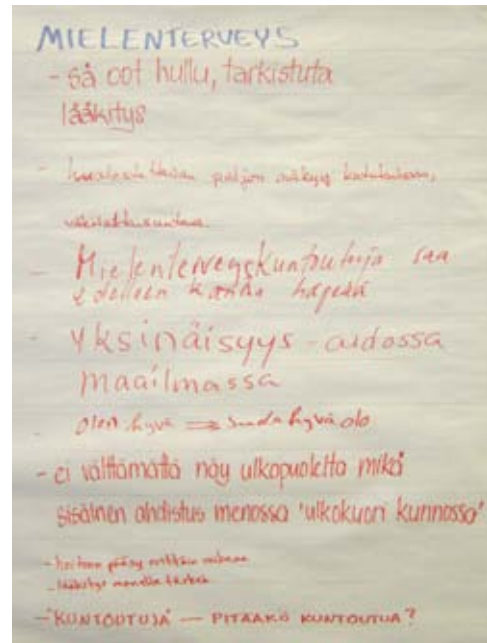 MIELENTERVEYS
- Så oot hullu, tarkistuta
lääkitys
- paljon
- Mielenterveyskuntoutuja saa
edelleen kantaa häpeää
- Yksinäisyys - aidossa
maailmassa
olen hyvä ⇒ hyvä olo
- ei välttämättä näy ulkopuolelta mikä
sisäinen ahdistus menossa 'ulkokuori kunnossa'
- hoitoon pääsy
- lääkitys monelle tärkeä
- "KUNTOUTUJA" — PITÄÄKÖ KUNTOUTUA?